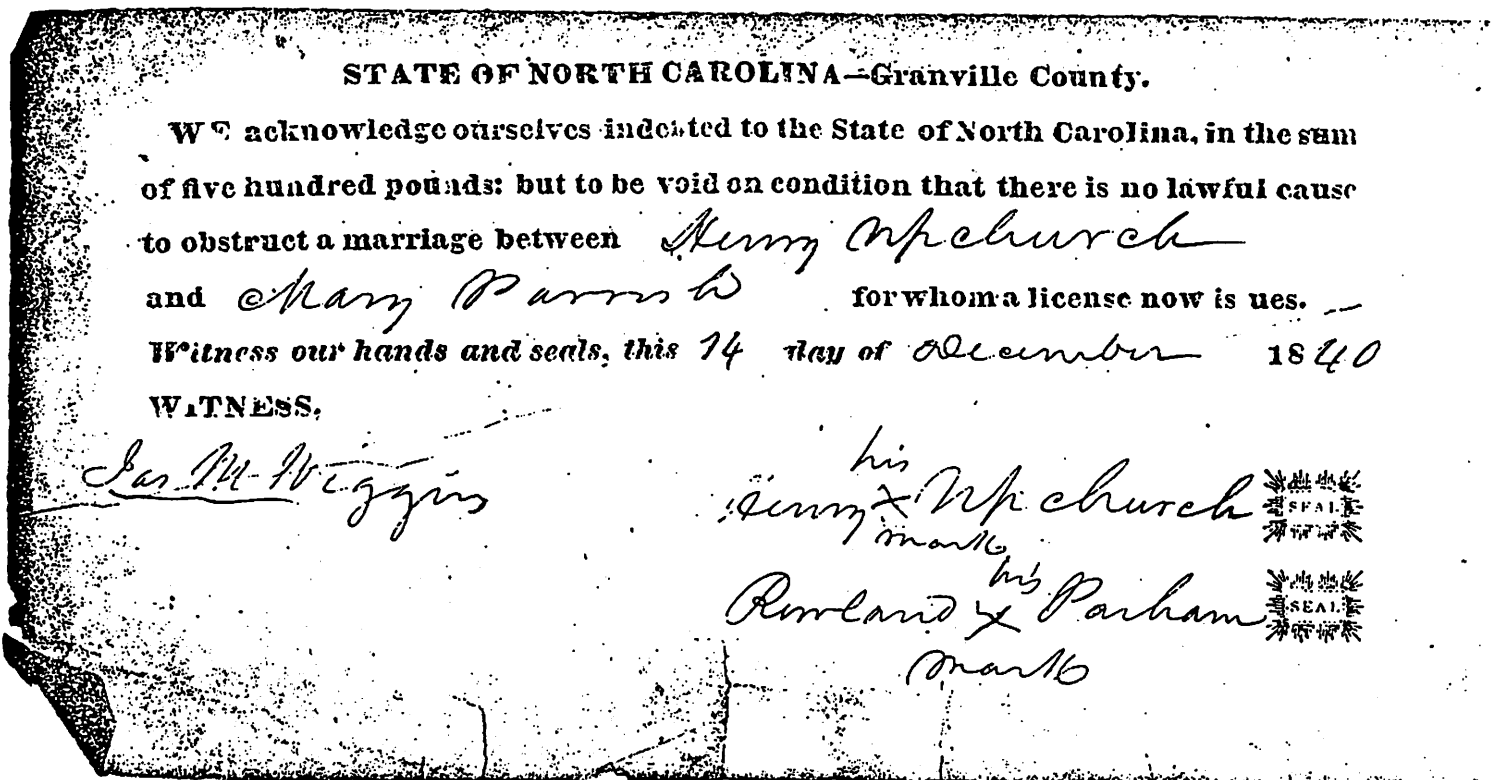 STATE OF NORTH CAROLINA—Granville County.
WE acknowledge ourselves indebted to the State of North Carolina, in the sum
of five hundred pounds: but to be void on condition that there is no lawful cause
to obstruct a marriage between Henry Upchurch
and Mary Parrish for whom a license now is ues.
Witness our hands and seals, this 14 day of December 1840
WITNESS.
his
Jas M. Wiggins Henry X Upchurch SEAL
mark
his
Rowland X Parham SEAL
mark